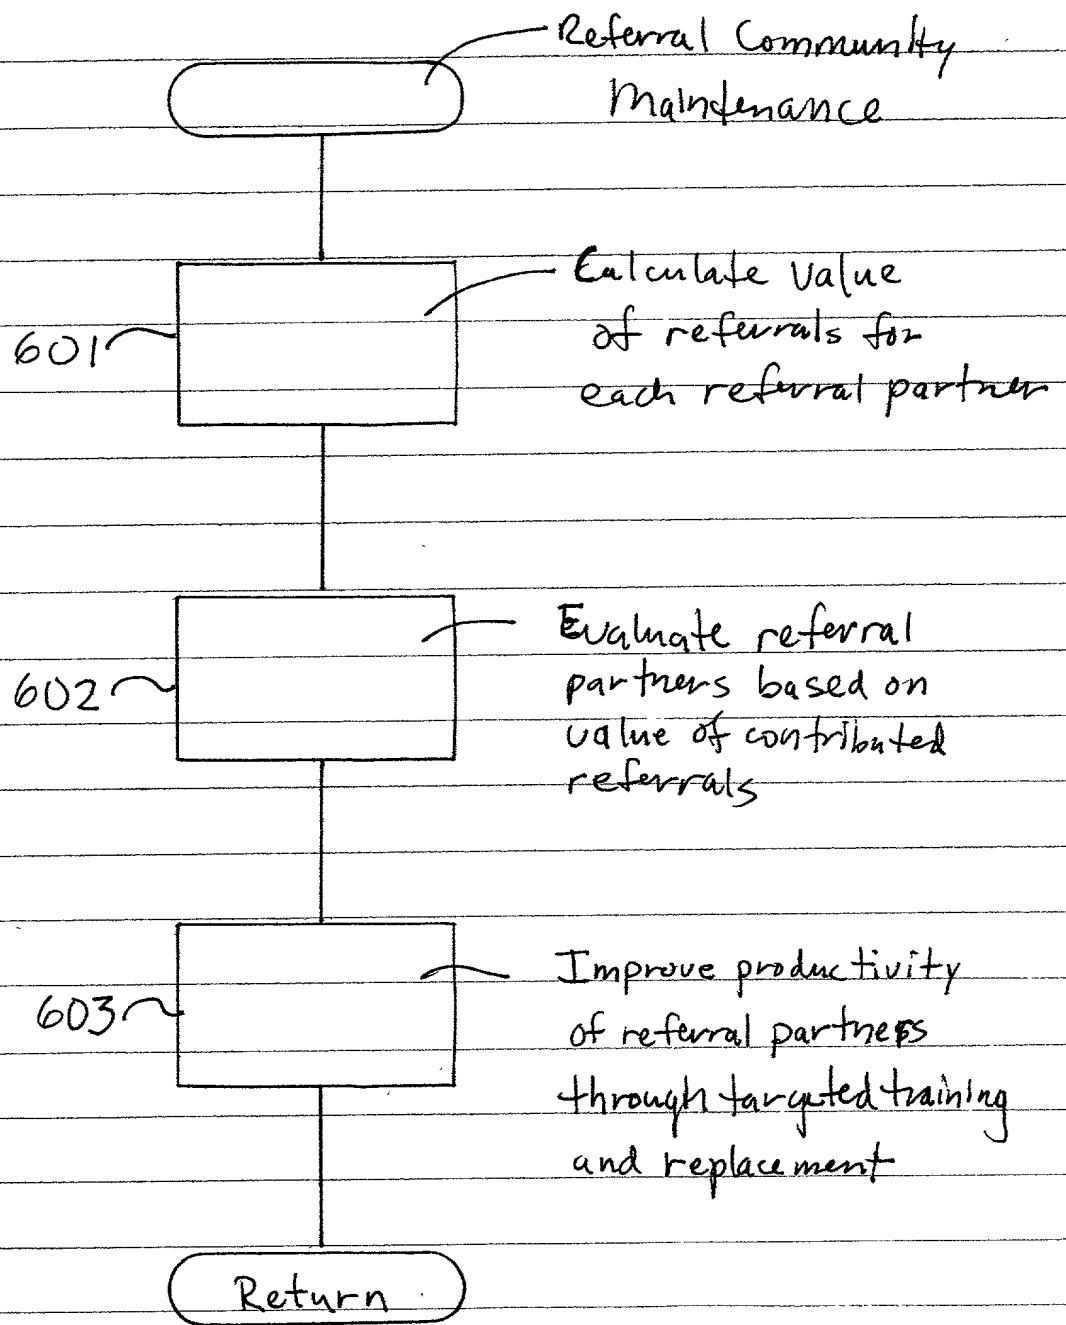 Referral Community
Maintenance
601
Calculate value
of referrals for
each referral partner
602
Evaluate referral
partners based on
value of contributed
referrals
603
Improve productivity
of referral partners
through targeted training
and replacement
Return